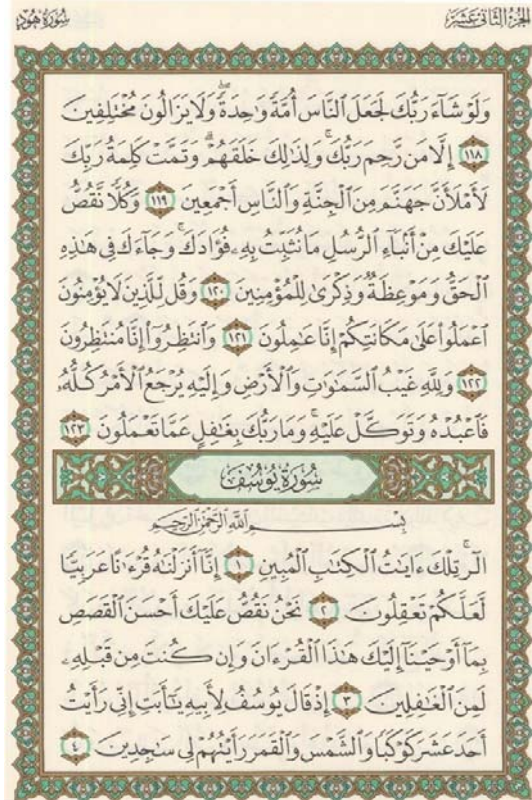 الجزء الثاني عشر
سورة هود
وَلَوْ شَآءَ رَبُّكَ لَجَعَلَ ٱلنَّاسَ أُمَّةً وَٰحِدَةً ۖ وَلَا يَزَالُونَ مُخْتَلِفِينَ
١١٨ إِلَّا مَن رَّحِمَ رَبُّكَ ۚ وَلِذَٰلِكَ خَلَقَهُمْ ۗ وَتَمَّتْ كَلِمَةُ رَبِّكَ
لَأَمْلَأَنَّ جَهَنَّمَ مِنَ ٱلْجِنَّةِ وَٱلنَّاسِ أَجْمَعِينَ ١١٩ وَكُلًّا نَّقُصُّ
عَلَيْكَ مِنْ أَنۢبَآءِ ٱلرُّسُلِ مَا نُثَبِّتُ بِهِۦ فُؤَادَكَ ۚ وَجَآءَكَ فِى هَٰذِهِ
ٱلْحَقُّ وَمَوْعِظَةٌ وَذِكْرَىٰ لِلْمُؤْمِنِينَ ١٢٠ وَقُل لِّلَّذِينَ لَا يُؤْمِنُونَ
ٱعْمَلُوا۟ عَلَىٰ مَكَانَتِكُمْ إِنَّا عَٰمِلُونَ ١٢١ وَٱنتَظِرُوٓا۟ إِنَّا مُنتَظِرُونَ
١٢٢ وَلِلَّهِ غَيْبُ ٱلسَّمَٰوَٰتِ وَٱلْأَرْضِ وَإِلَيْهِ يُرْجَعُ ٱلْأَمْرُ كُلُّهُۥ
فَٱعْبُدْهُ وَتَوَكَّلْ عَلَيْهِ ۚ وَمَا رَبُّكَ بِغَٰفِلٍ عَمَّا تَعْمَلُونَ ١٢٣
سورة يوسف
بِسْمِ ٱللَّهِ ٱلرَّحْمَٰنِ ٱلرَّحِيمِ
الٓر ۚ تِلْكَ ءَايَٰتُ ٱلْكِتَٰبِ ٱلْمُبِينِ ١ إِنَّآ أَنزَلْنَٰهُ قُرْءَٰنًا عَرَبِيًّا
لَّعَلَّكُمْ تَعْقِلُونَ ٢ نَحْنُ نَقُصُّ عَلَيْكَ أَحْسَنَ ٱلْقَصَصِ
بِمَآ أَوْحَيْنَآ إِلَيْكَ هَٰذَا ٱلْقُرْءَانَ وَإِن كُنتَ مِن قَبْلِهِۦ
لَمِنَ ٱلْغَٰفِلِينَ ٣ إِذْ قَالَ يُوسُفُ لِأَبِيهِ يَٰٓأَبَتِ إِنِّى رَأَيْتُ
أَحَدَ عَشَرَ كَوْكَبًا وَٱلشَّمْسَ وَٱلْقَمَرَ رَأَيْتُهُمْ لِى سَٰجِدِينَ ٤